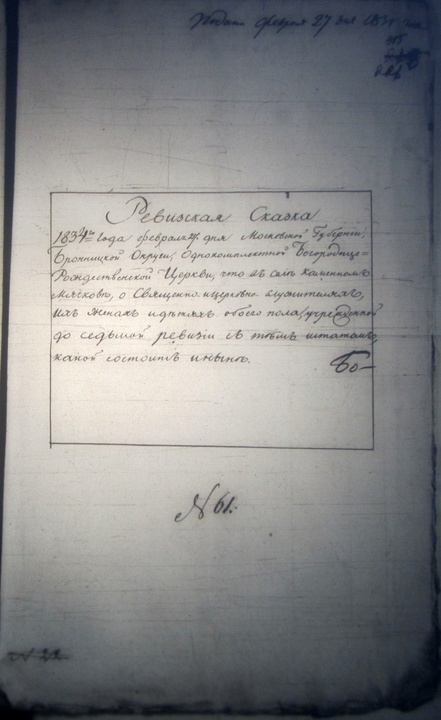 Подана февраля 27 дня 1834 года
Ревизская Сказка
1834го года февраля 27. дня Московской Губернiи,
Бронницкой Округи, Однокомплектной Богородице=
Рождественской Церкви, что въ селѣ Каменномъ
Мячковѣ, о Священно ицерковно служителяхъ,
ихъ женахъ идѣтяхъ обоего пола, учрежденной
до седьмой ревизiи съ тѣмъ штатомъ,
какой состоитъ инынѣ.
Бо-
N 61.
N 22